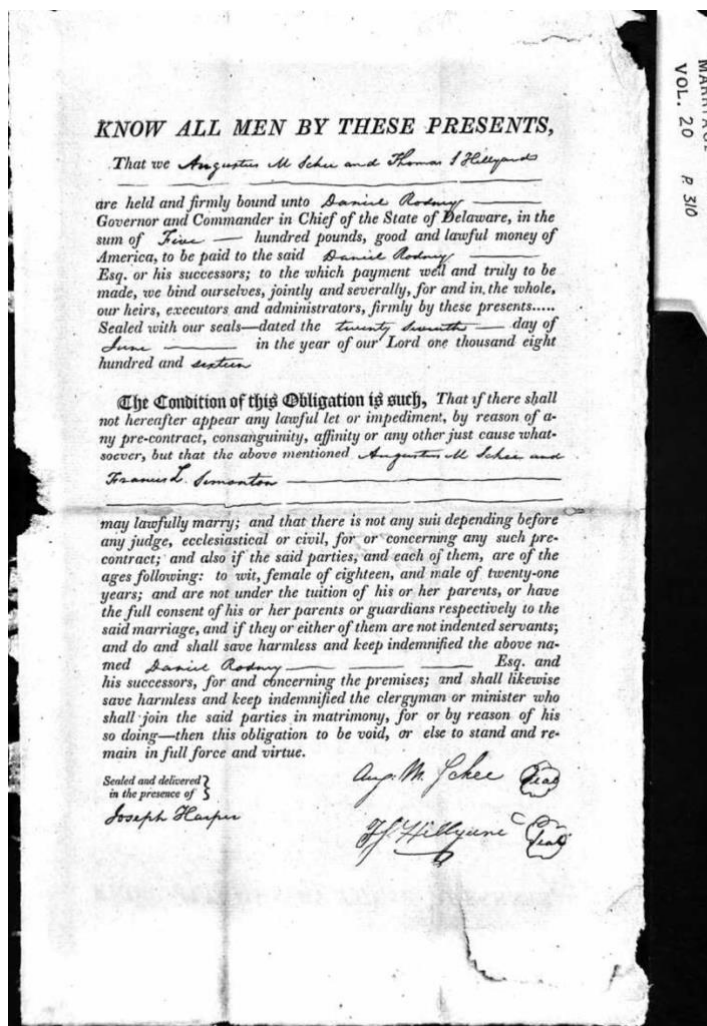 KNOW ALL MEN BY THESE PRESENTS,
That we Augustus M Schee and Thomas S Hillyard
are held and firmly bound unto Daniel Rodney
Governor and Commander in Chief of the State of Delaware, in the
sum of Five hundred pounds, good and lawful money of
America, to be paid to the said Daniel Rodney
Esq. or his successors; to the which payment well and truly to be
made, we bind ourselves, jointly and severally, for and in, the whole,
our heirs, executors and administrators, firmly by these presents.....
Sealed with our seals—dated the twenty seventh day of
June in the year of our Lord one thousand eight
hundred and sixteen
The Condition of this Obligation is such, That if there shall
not hereafter appear any lawful let or impediment, by reason of a-
ny pre-contract, consanguinity, affinity or any other just cause what-
soever, but that the above mentioned Augustus M Schee and
Frances L. Simonton
may lawfully marry; and that there is not any suit depending before
any judge, ecclesiastical or civil, for or concerning any such pre-
contract; and also if the said parties, and each of them, are of the
ages following: to wit, female of eighteen, and male of twenty-one
years; and are not under the tuition of his or her parents, or have
the full consent of his or her parents or guardians respectively to the
said marriage, and if they or either of them are not indented servants;
and do and shall save harmless and keep indemnified the above na-
med Daniel Rodney Esq. and
his successors, for and concerning the premises; and shall likewise
save harmless and keep indemnified the clergyman or minister who
shall join the said parties in matrimony, for or by reason of his
so doing—then this obligation to be void, or else to stand and re-
main in full force and virtue.
Sealed and delivered
in the presence of
Joseph Harper
Aug. M. Schee Seal
Seal
VOL. 20 P 310